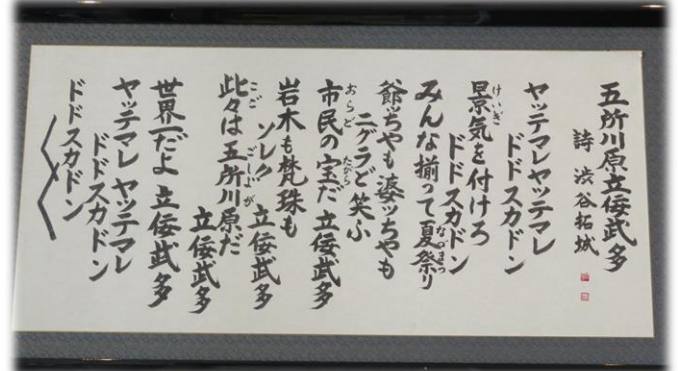 五所川原立佞武多
詩 渋谷拓城
ヤッテマレヤッテマレ
ドドスカドン
景気を付けろ
けいぎ
ドドスカドン
みんな揃って夏祭り
なづまつ
爺ッちゃも婆ッちゃも
ニグラど笑ふ
市民の宝だ 立佞武多
おらど たがら
岩木も梵珠も
ソレ!! 立佞武多
此々は五所川原だ
こご ごしょがわら
立佞武多
世界一だよ 立佞武多
ヤッテマレ ヤッテマレ
ドドスカドン
ドドスカドン